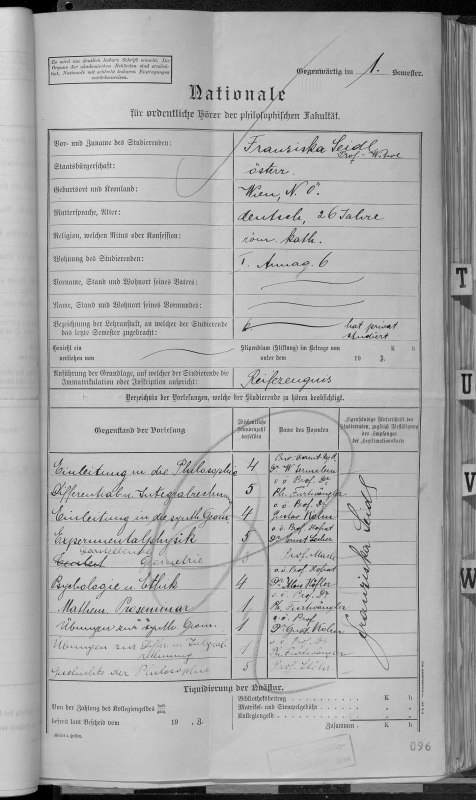 Es wird um deutlich lesbare Schrift ersucht. Die
Organe der akademischen Behörden sind ermäch-
tigt, Nationale mit schlecht lesbaren Eintragungen
zurückzuweisen.
Gegenwärtig im 1. Semester.
Nationale
für ordentliche Hörer der philosophischen Fakultät.
Vor- und Zuname des Studierenden: Franziska Seidl
Prof.-Witwe
Staatsbürgerschaft: österr.
Geburtsort und Kronland: Wien, N. Ö.
Muttersprache, Alter: deutsch, 26 Jahre
Religion, welchen Ritus oder Konfession: röm. kath.
Wohnung des Studierenden: I. Annag. 6
Vorname, Stand und Wohnort seines Vaters:
Name, Stand und Wohnort seines Vormundes:
Bezeichnung der Lehranstalt, an welcher der Studierende
das letzte Semester zugebracht: hat privat
studiert
Genießt ein Stipendium (Stiftung) im Betrage von K h
verliehen von unter dem 19 Z.
Anführung der Grundlage, auf welcher der Studierende die
Immatrikulation oder Inskription anspricht: Reifezeugnis
Verzeichnis der Vorlesungen, welche der Studierende zu hören beabsichtigt.
Gegenstand der Vorlesung
Wöchentliche
Stundenzahl
derselben
Name des Dozenten
Eigenhändige Unterschrift des
Studierenden, zugleich Bestätigung
des Empfanges
der Legitimationskarte
Einleitung in die Philosophie 4 Dr W. Jerusalem
Differential u. Integralrechnung 5 o. ö. Prof. Dr.
Ph. Furtwängler
Einleitung in die synth. Geom. 4 Gustav Kohn
Experimentalphysik 5 o. ö. Prof. Hofrat
Dr Ernst Lecher
Darstellende
Geometrie 3 Prof.
Psychologie u. Ethik 4 o. ö. Prof. Hofrat
Dr. Alois Höfler
Mathem. Proseminar 1 o. ö. Prof. Dr.
Ph. Furtwängler
Übungen zur synth. Geom. 1 o. ö. Prof
Dr Gust. Kohn
Übungen zur Differ. u. Integral-
rechnung 1 o. ö. Prof. Dr
Ph. Furtwängler
Geschichte der Philosophie 5 Prof. Stöhr
Franziska Seidl
Liquidierung der Quästur.
Von der Zahlung des Kollegiengeldes ganz
halb
befreit laut Bescheid vom 19 Z.
Bibliotheksbeitrag K h
Matrikel- und Stempelgebühr " "
Kollegiengeld " "
Zusammen K h
096
T
U
V
W